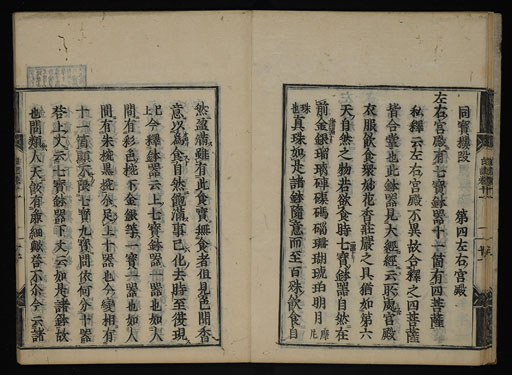 同寶樓段　第四左右宮殿
左右宮殿有七寶鉢器十一箇有四菩薩
私釋云左右宮殿不異故合釋之四菩薩
皆合掌也此鉢器見大經經云所處宮殿
衣服飲食衆妙花香莊嚴之具猶如第六
天自然之物若欲食時七寶鉢器自然在
前金銀瑠璃硨磲碼碯珊瑚琥珀明月摩尼
珠也真珠如是諸鉢隨意而至百味飲食自
然盈滿雖有此食實無食者但見色聞香
意以為食自然飽滿事已化去時至復現
已上今釋鉢器云上七寶鉢器一寶也如人
間有彩色椀下金銀等一寶一器也如人
間有朱椀黑椀衆足上十器也今變相有
十一箇顯不限七寶九寶問依何分十器
答上文云七寶鉢器下文云如是諸鉢故
也問類人天飯有麁細歟答不尒今云諸